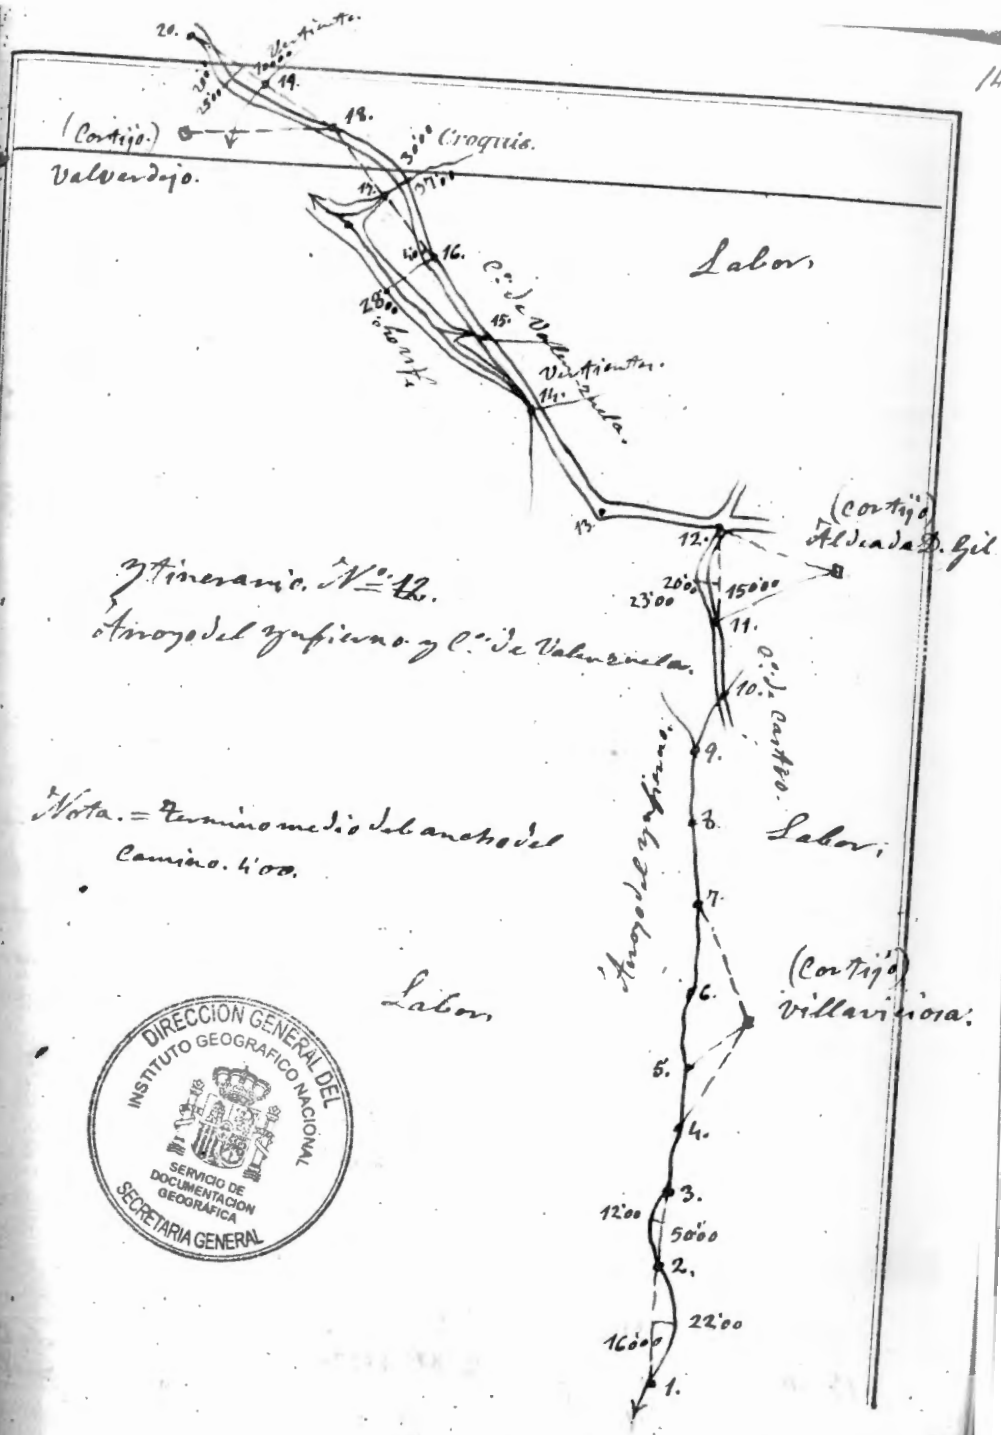 14
20.
Vertiente.
100'00
19.
20'0
25'00
18.
(Cortijo.)
Valverdejo.
30'00
Croquis.
37'00
17.
16.
Labor,
28'00
C.º de Valenzuela.
15.
Vertientes.
14.
13.
12.
(cortijo)
Aldea de D. Gil
20'00
150'00
23'00
11.
Ytinerario. Nº 12.
Arroyo del Ynfierno y C.º de Valenzuela.
10.
C.º de Castro.
9.
Arroyo del Ynfierno.
8.
Nota. = Termino medio del ancho del
Camino. 4'00.
Labor,
7.
(Cortijo)
Villaviciosa.
6.
Labor,
5.
4.
3.
12'00
50'00
2.
22'00
160'00
1.
DIRECCION GENERAL DEL
INSTITUTO GEOGRAFICO NACIONAL
SERVICIO DE
DOCUMENTACION
GEOGRAFICA
SECRETARIA GENERAL